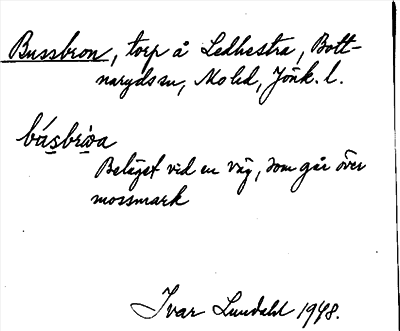 Bussbron, torp å Ledhestra, Bott-
narydssn, Mo hd, Jönk. l.
básbròa
Beläget vid en väg, som går över
mossmark
Ivar Lundahl 1948.